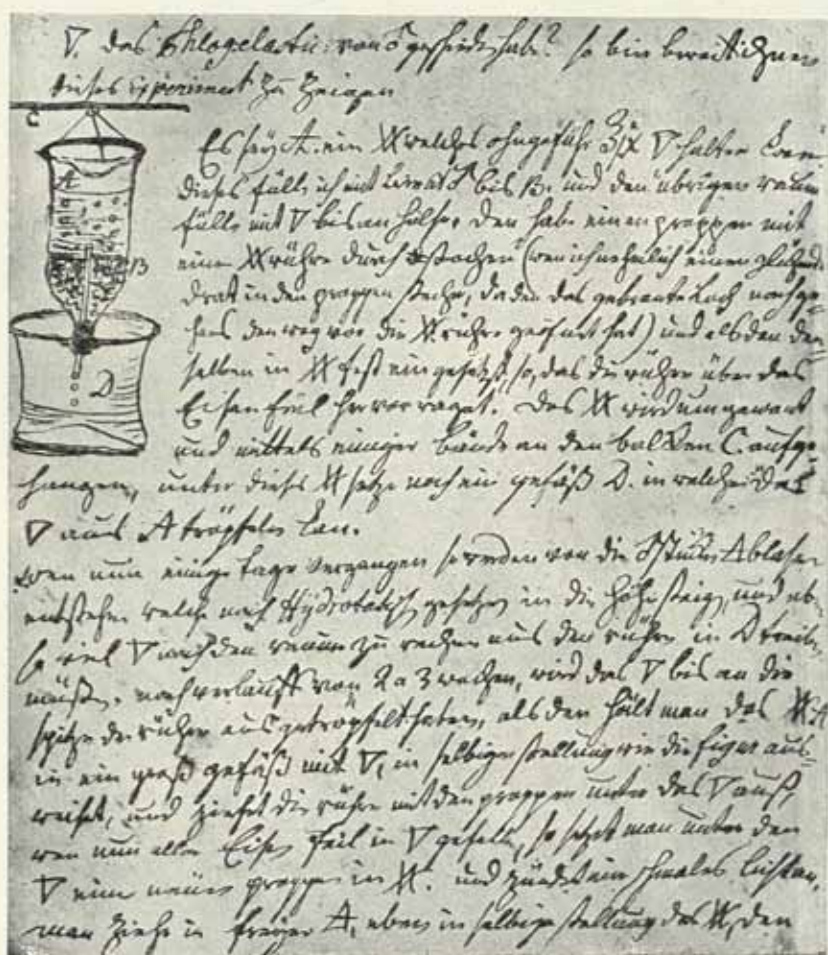 ▽. das Phlogelastic: von ♂ geschieden habe? so bin bereit ihnen
dieses experiment zu zeigen
C
A
B
D
Es sey A. ein welches ohngefähr ▽ halten kan.
dieses fülle ich mit bis B. und den übrigen raum
fülle mit ▽ bis an halse, den habe einen proppen mit
eine röhre durch stochen (wen ich nehmlich einen glühend
drat in den proppen steche, da den das gebrante Loch nachge-
hens den weg vor die röhre geöfnet hat) und als den den-
selben in fest eingesetzt, so, das die röhre über das
Eisenfeil hervorraget. Das wird umgewant
und mittels einiger bände an den balken C. aufge-
hangen, unter dieses setze noch ein gefäß D. in welches das
▽ aus A tröpfeln kan.
wen nun einige tage vergangen so werden von die blasen
entstehen welche nach Hydrostatisch gesetzen in die höhe steigen, und eben
so viel ▽ nach den raum zu rechnen aus den röhre in D treiben
müßen. nach verlauff von 2 a 3 wochen, wird das ▽ bis an die
spitze der röhre aus getröpfelt haben, als den hält man das A
in ein groß gefäß mit ▽, in selbiger stellung wie die figur aus-
weiset, und ziehet die röhre mit den proppen unter das ▽ auß,
wen nun alles Eisen feil in ▽ gefallen, so setzet man unter den
▽ eine neuen proppen in und zündet ein schmales licht an,
man ziehe in freyer eben in selbige stellung des den